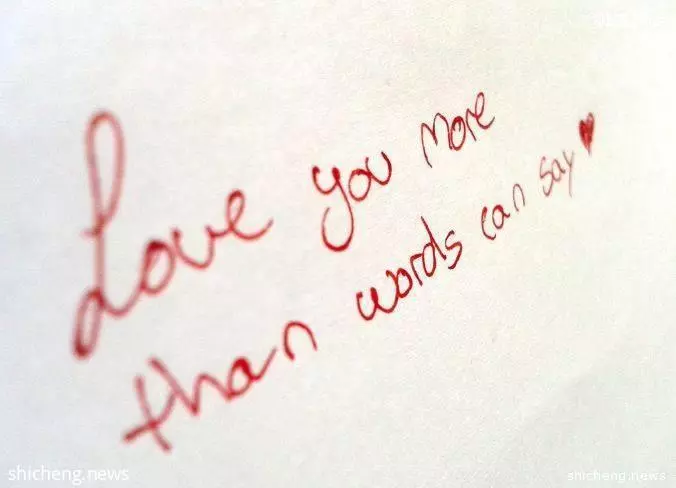 Love you More
than words can say♥
shicheng.news
shicheng.news